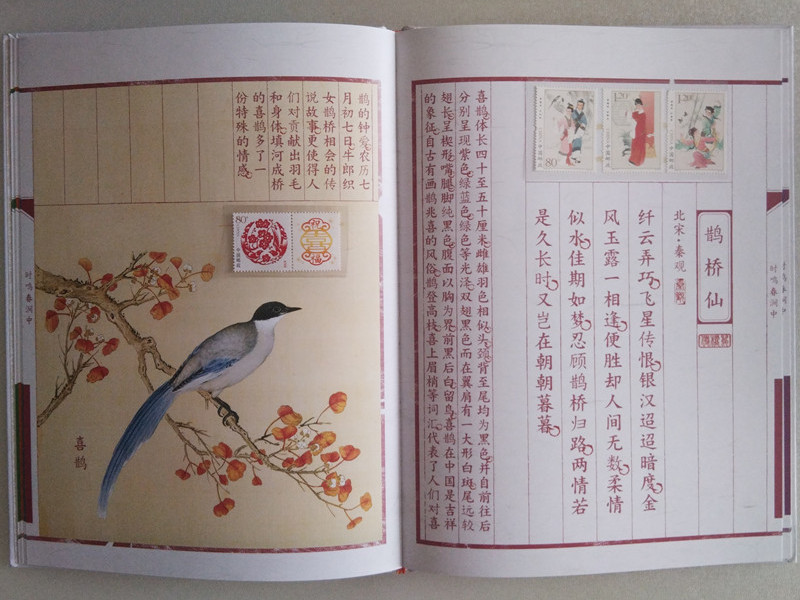 时鸣春涧中
鹊桥仙
北宋·秦观
纤云弄巧。飞星传恨。银汉迢迢暗度。金
风玉露一相逢。便胜却人间无数。柔情
似水。佳期如梦。忍顾鹊桥归路。两情若
是久长时。又岂在朝朝暮暮。
1.20
1.20
80
喜鹊体长四十至五十厘米。雌雄羽色相似。头颈背至尾均为黑色。并自前往后
分别呈现紫色。绿蓝色。绿色等光泽。双翅黑色而在翼肩有一大形白斑。尾远较
翅长。呈楔形。嘴腿脚纯黑色。腹面以胸为界。前黑后白。留鸟。喜鹊在中国是吉祥
的象征。自古有画鹊兆喜的风俗。鹊登高枝。喜上眉梢等词汇。代表了人们对喜
鹊的钟爱。农历七
月初七日。牛郎织
女鹊桥相会的传
说故事。更使得人
们对贡献出羽毛
和身体。填河成桥
的喜鹊。多了一
份特殊的情感。
80
喜
福
喜鹊
时鸣春涧中